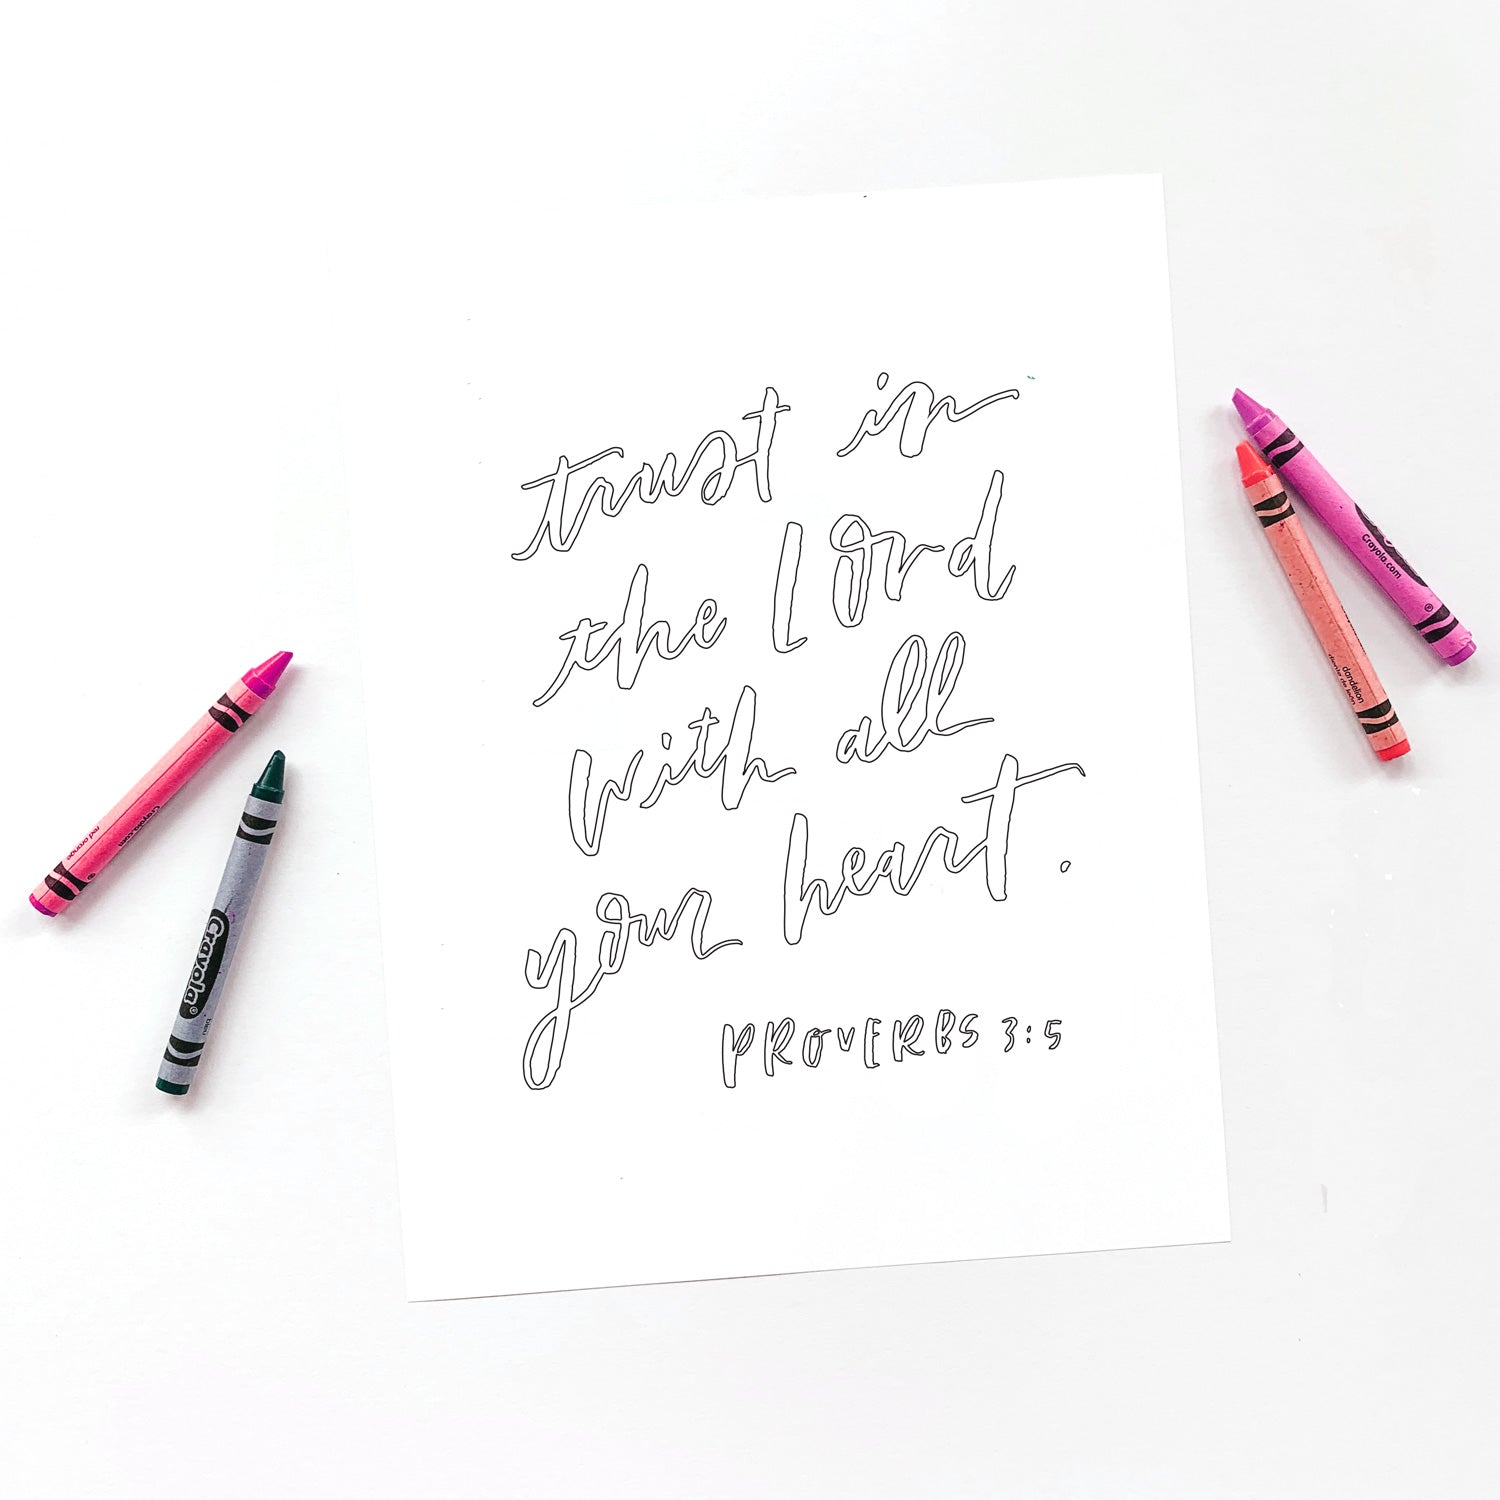 trust in
the Lord
with all
your heart.
PROVERBS 3:5
Crayola.com
red orange
Crayola
Crayola.com
dandelion